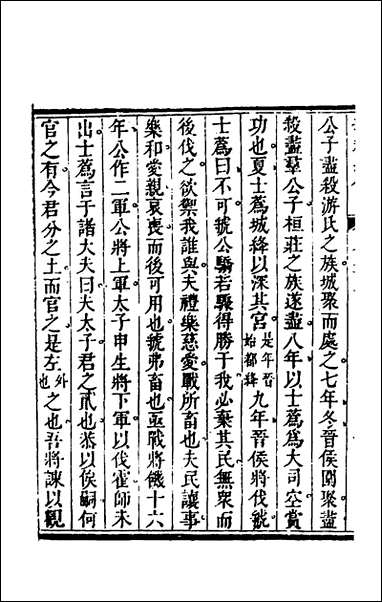 公子盡殺游氏之族城聚而處之七年冬晉侯圍聚盡
殺羣公子桓莊之族遂盡八年以士蔿爲大司空賞
功也夏士蔿城絳以深其宮是年晉始都絳九年晉侯將伐虢
士蔿曰不可虢公驕若驟得勝于我必棄其民無衆而
後伐之欲禦我誰與夫禮樂慈愛戰所畜也夫民讓事
樂和愛親哀喪而後可用也虢弗畜也亟戰將饑十六
年公作二軍公將上軍太子申生將下軍以伐霍師未
出士蔿言于諸大夫曰夫太子君之貳也恭以俟嗣何
官之有今君分之土而官之是左外也之也吾將諫以觀